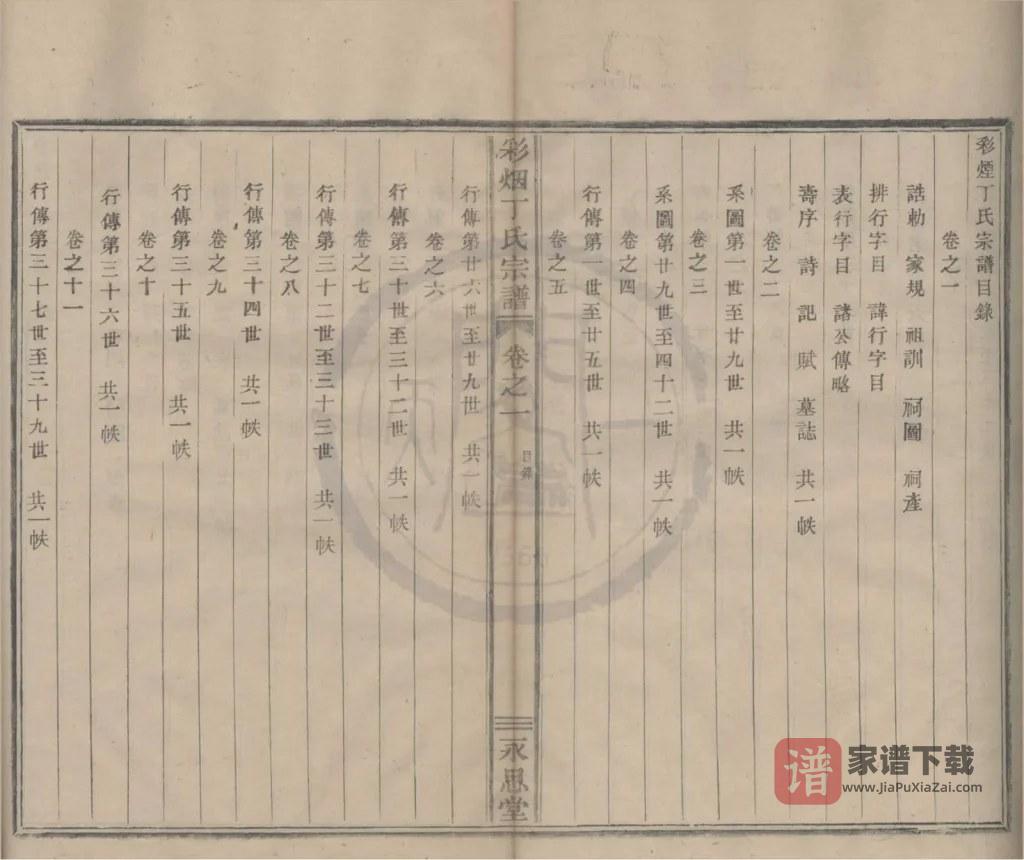 彩煙丁氏宗譜目錄
卷之一
誥勅 家規 祖訓 祠圖 祠產
排行字目 諱行字目
表行字目 諸公傳略
壽序 詩 記 賦 墓誌 共一帙
卷之二
系圖第一世至廿九世 共一帙
卷之三
系圖第廿九世至四十二世 共一帙
卷之四
行傳第一世至廿五世 共一帙
卷之五
彩烟丁氏宗譜 卷之一 目錄 永思堂
行傳第廿六世至廿九世 共一帙
卷之六
行傳第三十世至三十二世 共一帙
卷之七
行傳第三十二世至三十三世 共一帙
卷之八
行傳第三十四世 共一帙
卷之九
行傳第三十五世 共一帙
卷之十
行傳第三十六世 共一帙
卷之十一
行傳第三十七世至三十九世 共一帙
谱 家谱下载
www.JiaPuXiaZai.com